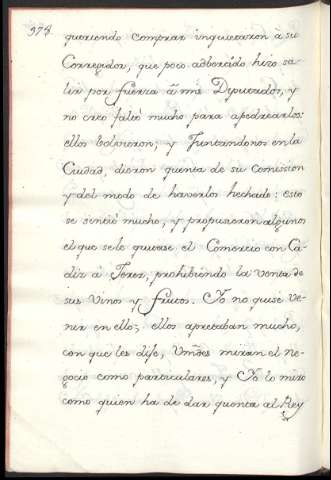 378.
queriendo comprar inquietaron à su
Corregidor, que poco advertido hizo sa-
lir por fuerza à mis Diputados, y
no creo faltó mucho para apedrearlos:
ellos bolvieron; y Juntandonos en la
Ciudad, dieron quenta de su Comission
y del modo de haverlos hechado: esto
se sintió mucho, y propusieron algunos
el que se le quitase el Comercio con Ca-
diz à Jerez, prohibiendo la venta de
sus Vinos y frutos. Yo no quise ve-
nir en ello; ellos apretaban mucho,
con que les dije, Vmds miran el ne-
gocio como particulares, y Yo lo miro
como quien ha de dar quenta al Rey